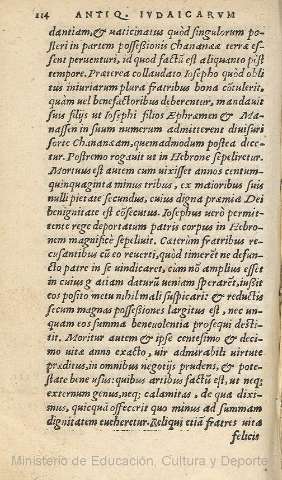 114 ANTIQ. IVDAICARVM
dantiam, & vaticinatus quòd singulorum po-
steri in partem possessionis Chananææ terræ es-
sent peruenturi, id quod factũ est aliquanto pòst
tempore. Præterea collaudato Iosepho quòd obli
tus iniuriarum plura fratribus bona cõtulerit,
quàm vel benefactoribus deberentur, mandauit
suis filijs vt Iosephi filios Ephræmen & Ma-
nassen in suum numerum admitterent diuisuri
sorte Chananæam, quemadmodum postea dice-
tur. Postremo rogauit vt in Hebrone sepeliretur.
Mortuus est autem cum vixisset annos centum-
quinquaginta minus tribus, ex maioribus suis
nulli pietate secundus, cuius digna præmia Dei
benignitate est cõsecutus. Iosephus verò permit-
tente rege deportatum patris corpus in Hebro-
nem magnificè sepeliuit. Cæterùm fratribus re-
cusantibus cũ eo reuerti, quòd timerẽt ne defun-
cto patre in se vindicaret, cùm nõ amplius esset
in cuius gratiam daturũ veniam sperarẽt, iußit
eos posito metu nihil mali suspicari: & reductis
secum magnas possessiones largitus est, nec vn-
quam eos summa beneuolentia prosequi destĩ-
tit. Moritur autem & ipse centesimo & deci-
mo vitæ anno exacto, vir admirabili virtute
præditus, in omnibus negotijs prudens, & pote-
state bene vsus: quibus artibus factũ est, vt neq;
externum genus, neq; calamitas, de qua dixi-
mus, quicquã offecerit quo minus ad summam
dignitatem eueheretur. Reliqui etiã fratres vita
felicis
Ministerio de Educación, Cultura y Deporte